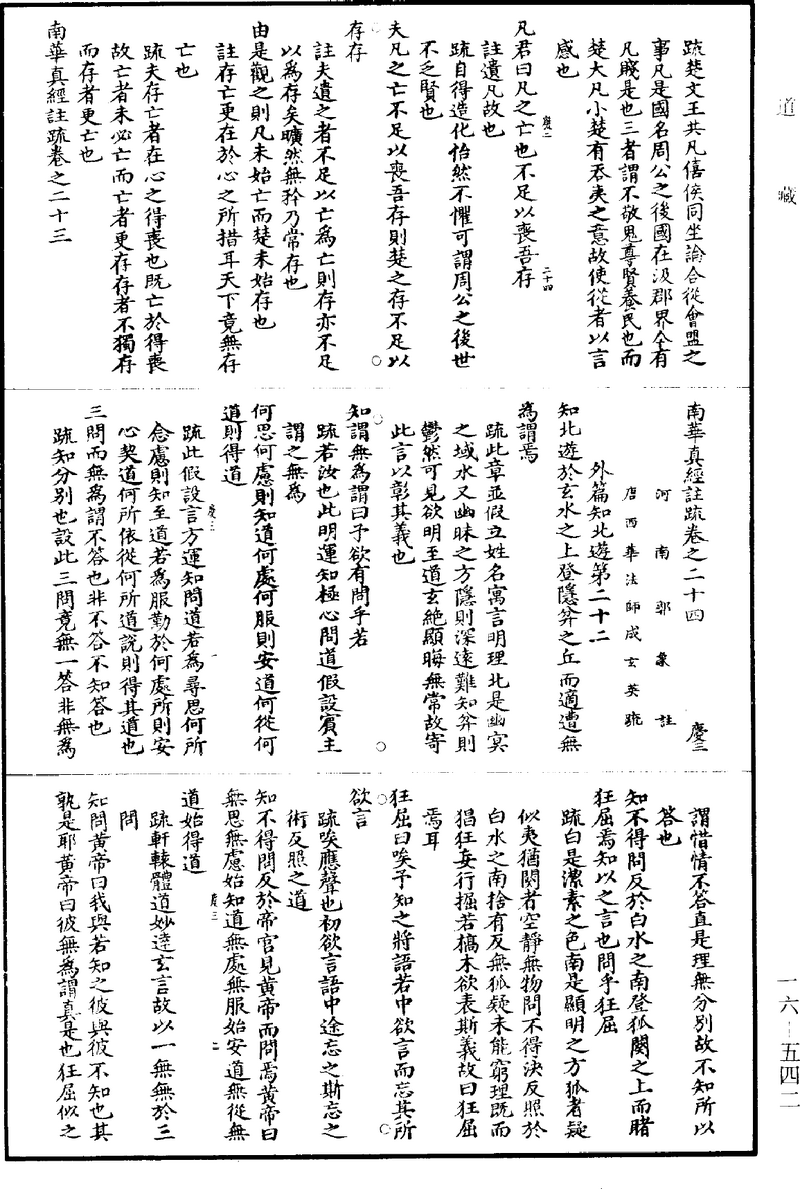 道藏
疏楚文王共凡僖侯同坐論合從會盟之
事凡是國名周公之後國在汲郡界今有
凡賤是也三者謂不敬鬼尊賢養民也而
楚大凡小楚有吞夷之意故使從者以言
感也
凡君曰凡之亡也不足以喪吾存
慶二
二十四
註遺凡故也
疏自得造化怡然不懼可謂周公之後世
不乏賢也
夫凡之亡不足以喪吾存則楚之存不足以
存存
註夫遺之者不足以亡為亡則存亦不足
以為存矣曠然無矜乃常存也
由是觀之則凡未始亡而楚未始存也
註存亡更在於心之所措耳天下竟無存
亡也
疏夫存亡者在心之得喪也既亡於得喪
故亡者未必亡而亡者更存存者不獨存
而存者更亡也
南華真經註疏卷之二十三
南華真經註疏卷之二十四
慶三
河南郭象註
唐西華法師成玄英疏
外篇知北遊第二十二
知北遊於玄水之上登隱弅之丘而適遭無
為謂焉
疏此章並假立姓名寓言明理北是幽冥
之域水又幽昧之方隱則深遠難知弅則
鬱然可見欲明至道玄絕顯晦無常故寄
此言以彰其義也
知謂無為謂曰予欲有問乎若
疏若汝也此明運知極心問道假設賓主
謂之無為
何思何慮則知道何處何服則安道何從何
道則得道
慶三
一
疏此假設言方運知問道若為尋思何所
念慮則知至道若為服勤於何處所則安
心契道何所依從何所道說則得其道也
三問而無為謂不答也非不答不知答也
疏知分別也設此三問竟無一答非無為
謂惜情不答直是理無分別故不知所以
答也
知不得問反於白水之南登狐闋之上而睹
狂屈焉知以之言也問乎狂屈
疏白是潔素之色南是顯明之方狐者疑
似夷猶闋者空靜無物問不得決反照於
白水之南捨有反無狐疑未能窮理既而
猖狂妄行掘若槁木欲表斯義故曰狂屈
焉耳
狂屈曰唉予知之將語若中欲言而忘其所
欲言
疏唉應聲也初欲言語中途忘之斯忘之
術反照之道
知不得問反於帝宮見黃帝而問焉黃帝曰
無思無慮始知道無處無服始安道無從無
道始得道
慶三
二
疏軒轅體道妙達玄言故以一無無於三
問
知問黃帝曰我與若知之彼與彼不知也其
孰是耶黃帝曰彼無為謂真是也狂屈似之
一六—五四二